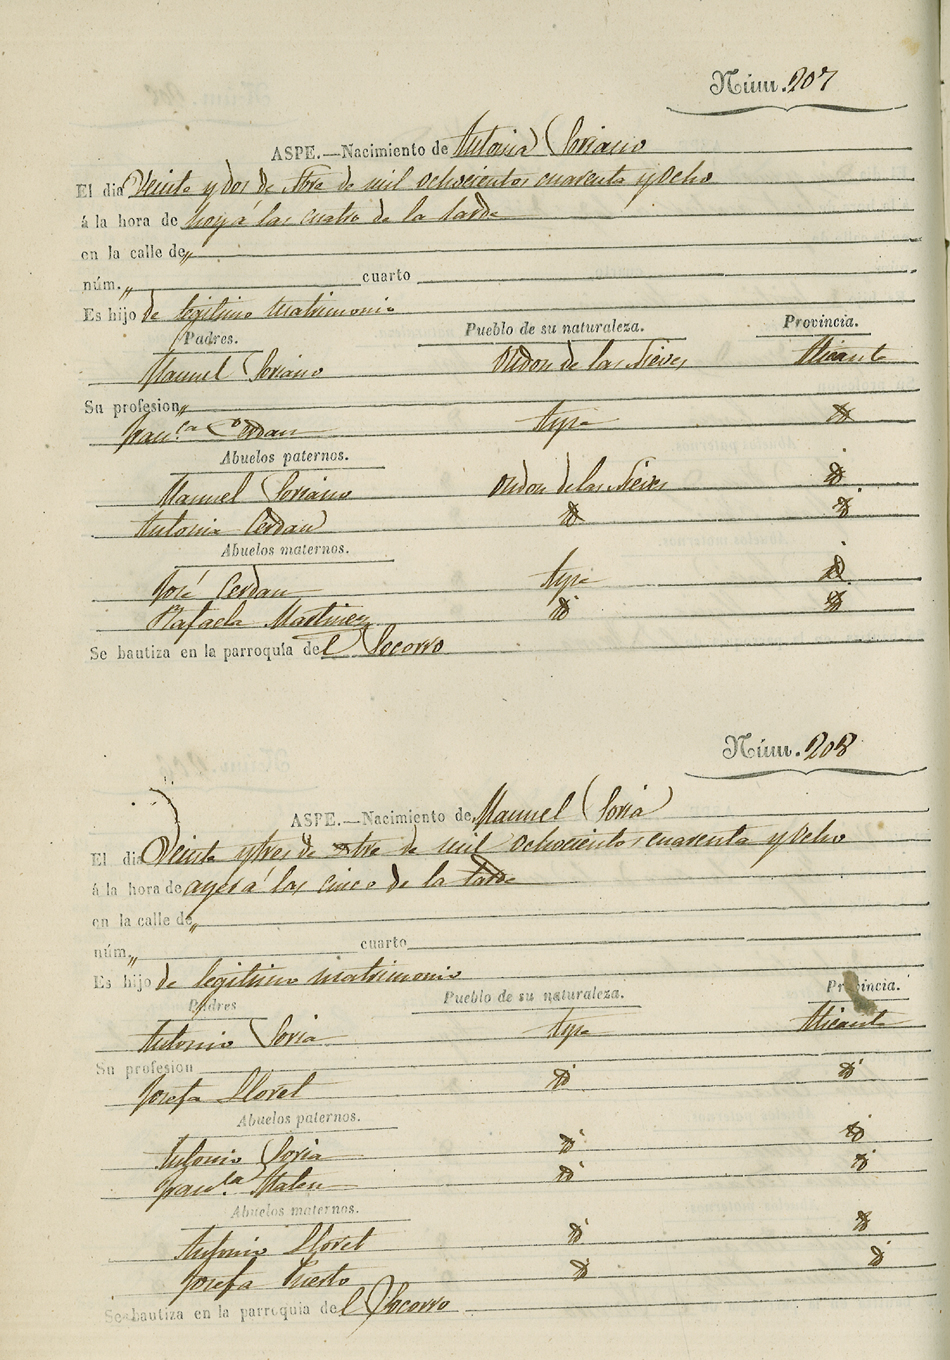 Núm. 207
ASPE.—Nacimiento de Antonia Soriano
El dia Veinte y dos de Stbre de mil ochocientos cuarenta y Ocho
á la hora de hoy á las cuatro de la tarde
en la calle de "
núm. " cuarto
Es hijo de legitimo matrimonio
Padres. Pueblo de su naturaleza. Provincia.
Manuel Soriano Ondon de las Nieves Alicante
Su profesion "
Fran.ca Cerdan Aspe Id
Abuelos paternos.
Manuel Soriano Ondon de las Nieves Id
Antonia Cerdan Id Id
Abuelos maternos.
José Cerdan Aspe Id
Rafaela Martinez Id Id
Se bautiza en la parroquia del Socorro
Núm. 208
ASPE.—Nacimiento de Manuel Soria
El dia Veinte y tres de Stbre de mil ochocientos cuarenta y Ocho
á la hora de ayer á las cinco de la tarde
en la calle de "
núm. " cuarto
Es hijo de legitimo matrimonio
Padres Pueblo de su naturaleza. Provincia.
Antonio Soria Aspe Alicante
Su profesion
Josefa Lloret Id Id
Abuelos paternos.
Antonio Soria Id Id
Fran.ca Id Id
Abuelos maternos.
Antonio Lloret Id Id
Josefa Puerto Id Id
Se bautiza en la parroquia del Socorro